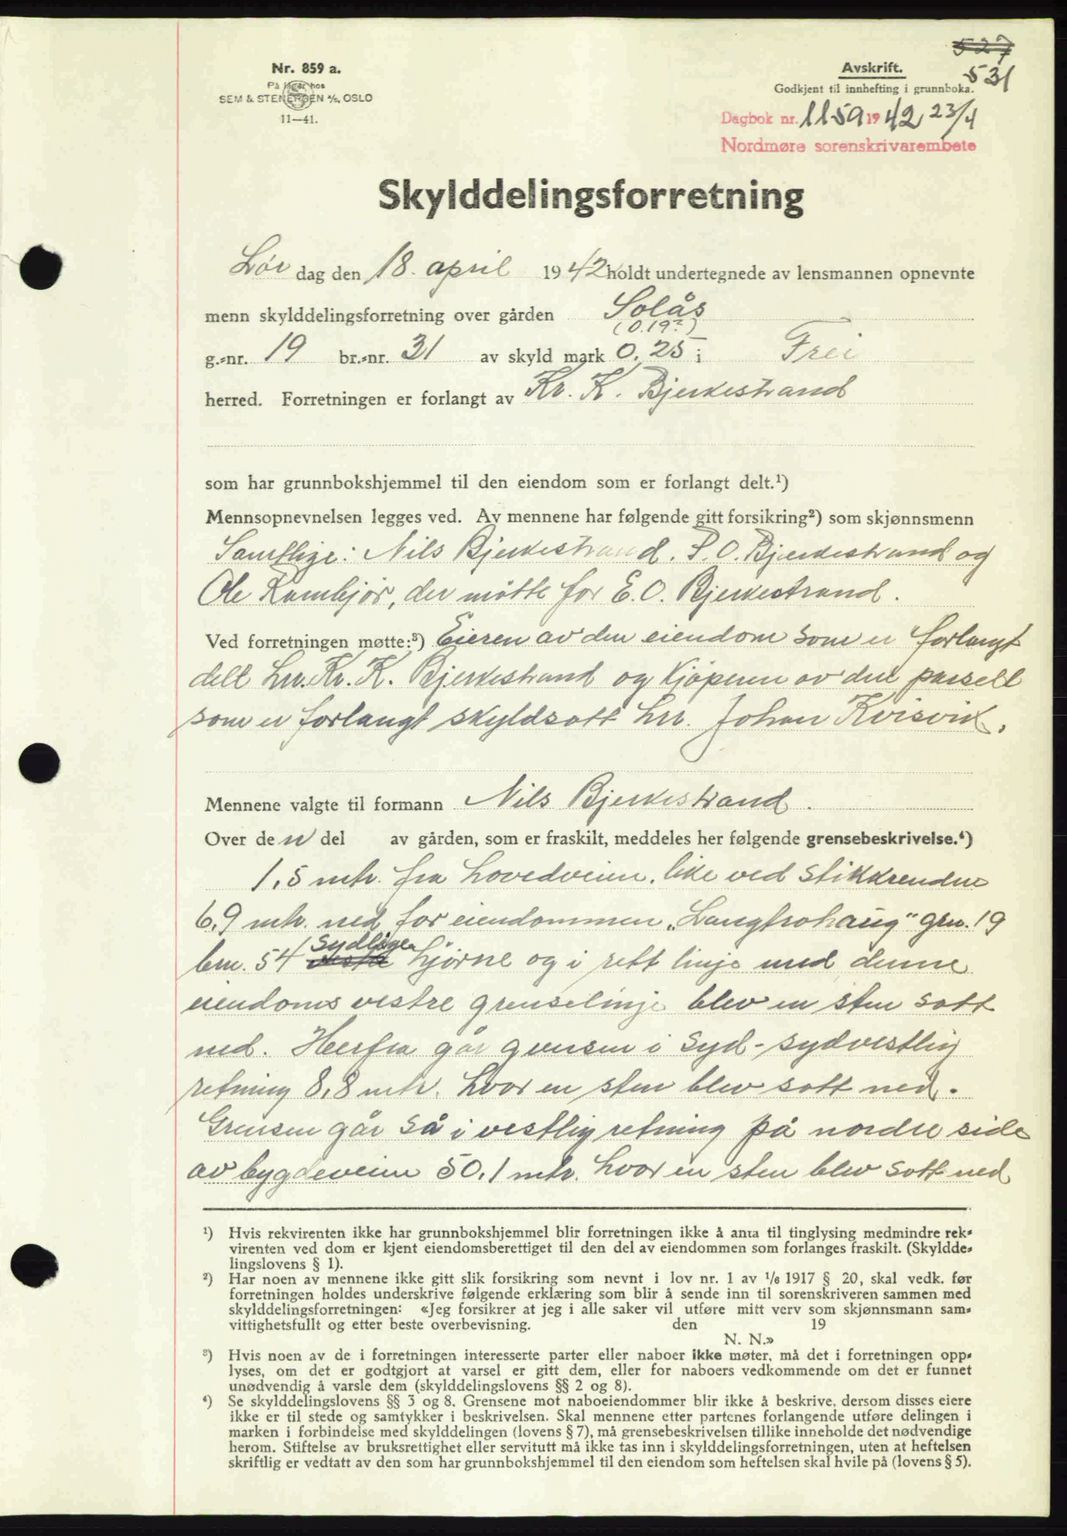 527
531
Nr. 859 a.
På lager hos
SEM & STENERSEN A/S, OSLO
11—41.
Avskrift.
Godkjent til innhefting i grunnboka.
Dagbok nr. 1159 1942 23/4
Nordmøre sorenskrivarembete
Skylddelingsforretning
Lør dag den 18. april 1942 holdt undertegnede av lensmannen opnevnte
menn skylddelingsforretning over gården Solås
(0.19?)
g.-nr. 19 br.-nr. 31 av skyld mark 0.25 i Frei
herred. Forretningen er forlangt av Kr. K. Bjerkestrand
som har grunnbokshjemmel til den eiendom som er forlangt delt.¹)
Mennsopnevnelsen legges ved. Av mennene har følgende gitt forsikring²) som skjønnsmenn
Samtlige: Nils Bjerkestrand. P. O. Bjerkestrand og
Ole Rambjør, der møtte for E. O. Bjerkestrand.
Ved forretningen møtte:³) Eieren av den eiendom som er forlangt
delt hr. Kr. K. Bjerkestrand og kjøperen av det parsell
som er forlangt skyldsatt hr. Johan Kvisvik.
Mennene valgte til formann Nils Bjerkestrand.
Over den del av gården, som er fraskilt, meddeles her følgende grensebeskrivelse.⁴)
1,5 mtr. fra hovedveien, like ved stikkrenden
6,9 mtr. ned for eiendommen „Langhohaug" grn. 19
brn. 54 sydligen hjørne og i rett linje med denne
eiendoms vestre grenselinje blev en sten satt
ned. Herfra går grensen i syd-sydvestlig
retning 8,8 mtr. hvor en sten blev satt ned.
Grensen går så i vestlig retning på nordre side
av bygdeveien 50,1 mtr. hvor en sten blev satt ned
¹) Hvis rekvirenten ikke har grunnbokshjemmel blir forretningen ikke å anta til tinglysing medmindre rek-
virenten ved dom er kjent eiendomsberettiget til den del av eiendommen som forlanges fraskilt. (Skyldde-
lingslovens § 1).
²) Har noen av mennene ikke gitt slik forsikring som nevnt i lov nr. 1 av 1/6 1917 § 20, skal vedk. før
forretningen holdes underskrive følgende erklæring som blir å sende inn til sorenskriveren sammen med
skylddelingsforretningen: «Jeg forsikrer at jeg i alle saker vil utføre mitt verv som skjønnsmann sam-
vittighetsfullt og etter beste overbevisning. den 19
N. N.»
³) Hvis noen av de i forretningen interesserte parter eller naboer ikke møter, må det i forretningen opp-
lyses, om det er godtgjort at varsel er gitt dem, eller for naboers vedkommende om det er funnet
unødvendig å varsle dem (skylddelingslovens §§ 2 og 8).
⁴) Se skylddelingslovens §§ 3 og 8. Grensene mot naboeiendommer blir ikke å beskrive, dersom disses eiere
ikke er til stede og samtykker i beskrivelsen. Skal mennene etter partenes forlangende utføre delingen i
marken i forbindelse med skylddelingen (lovens § 7), må grensebeskrivelsen tillike inneholde det nødvendige
herom. Stiftelse av bruksrettighet eller servitutt må ikke tas inn i skylddelingsforretningen, uten at heftelsen
skriftlig er vedtatt av den som har grunnbokshjemmel til den eiendom som heftelsen skal hvile på (lovens § 5).